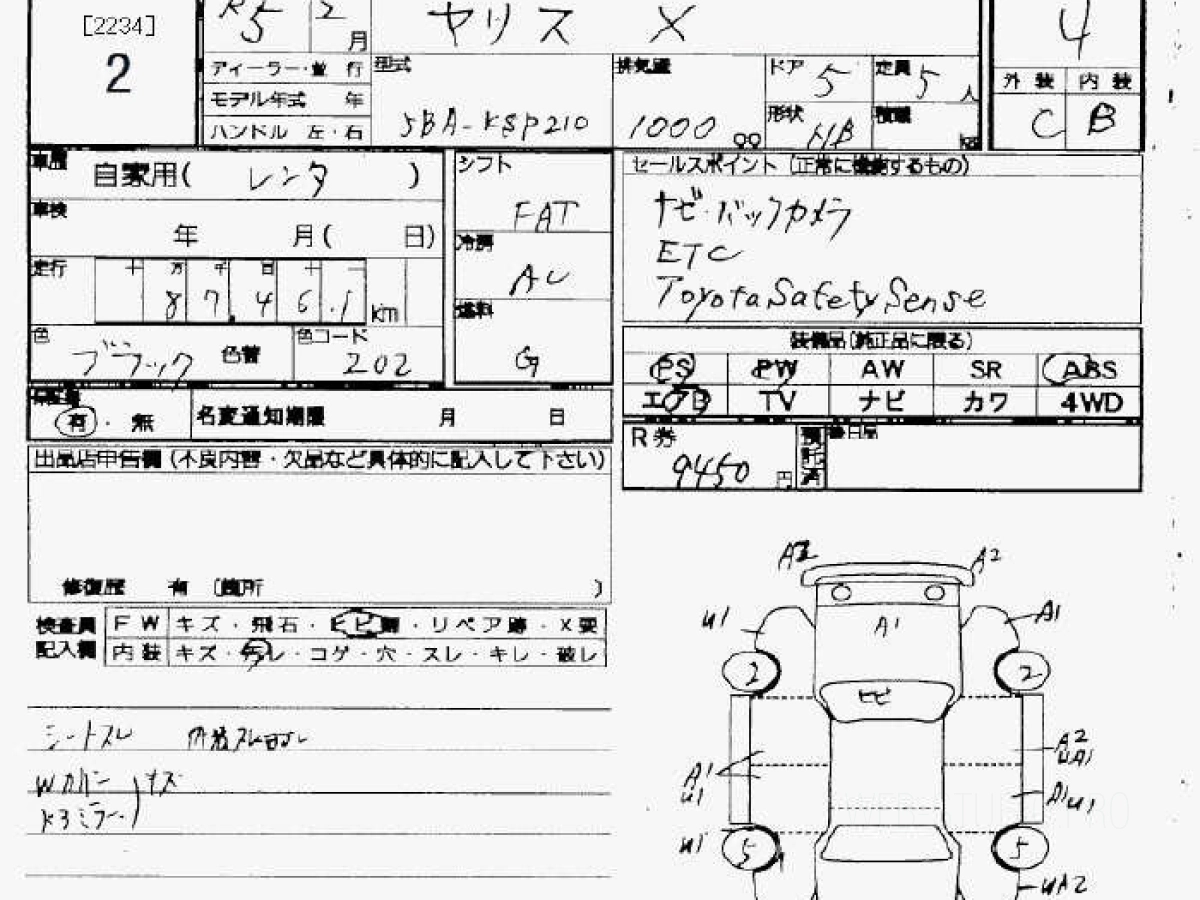 [2234]
2
R5 2月
ヤリス X
4
ディーラー・並行
モデル年式 年
ハンドル 左・右
型式
5BA-KSP210
排気量
1000 cc
ドア 5
定員 5 人
形状 HB
積載
外装 内装
C B
車歴 自家用( レンタ )
車検
年 月( 日)
走行 十 万 千 百 十 一
87.461 km
色 ブラック 色替
色コード 202
シフト
FAT
冷房
AC
燃料
G
セールスポイント (正常に機能するもの)
ナビ・バックカメラ
ETC
Toyota Safety Sense
装備品(純正品に限る)
PS PW AW SR ABS
エアB TV ナビ カワ 4WD
保証書
有・無 名変通知期限 月 日
R券
9450 円
預託済
出品店申告欄(不良内容・欠品など具体的に記入して下さい)
修復歴 有 (箇所 )
検査員記入欄
FW キズ・飛石・ヒビ・リペア跡・X要
内装 キズ・汚レ・コゲ・穴・スレ・キレ・破レ
シートスレ
キズ
ミラー
A2 A2
U1 A1 A1
2 2
ヒビ
A1
U1
A2
UA1
A1 U1
U1 5 5
UA2